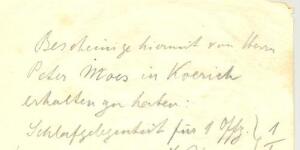 Bescheinige hiermit von Herrn
Peter Moes in Koerich
erhalten zu haben:
Schlafgelegenheit für 1 Offz. } 1